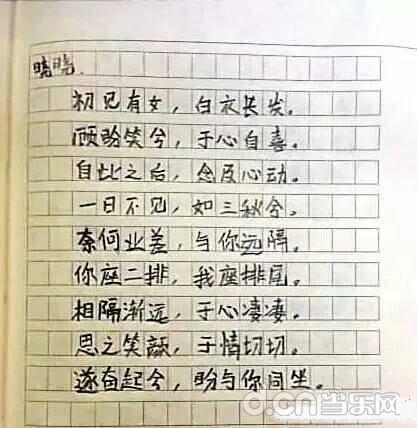 晓晓.
初见有女，白衣长发。
顾盼笑兮，于心自喜。
自此之后，念及心动。
一日不见，如三秋兮。
奈何业差，与你远隔。
你座二排，我座排尾。
相隔渐远，于心凄凄。
思之笑颜，于情切切。
遂奋起兮，盼与你同坐。
d.cn当乐网